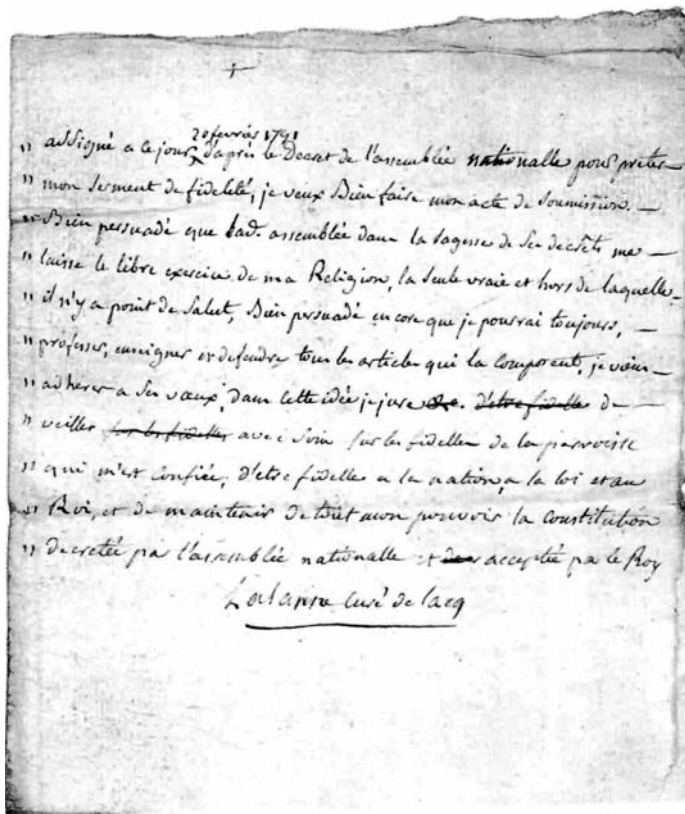 +
20 fevrier 1791
" assigné a ce jour, d'après le Decret de l'assemblée nationalle pour preter
" mon serment de fidelité, je veux Bien faire mon acte de soumission. —
" Bien persuadé que lad. assemblée dans la sagesse de ses decrets me —
" laisse le libre exercice de ma Religion, la seule vraie et hors de laquelle
" il n'y a point de Salut, Bien persuadé encore que je pourrai toujours, —
" professer, enseigner et defendre tous les articles qui la composent, je viens
" adherer a ses vœux, dans cette idée je jure d'etre fidelle de —
" veiller sur les fidelles avec soin sur les fidelles de la parroisse
" qui m'est confiée, d'etre fidelle a la nation, a la loi et au
" Roi, et de maintenir de tout mon pouvoir la constitution
" decretée par l'assemblée nationalle et acceptée par le Roy
Lalanne curé de lacq